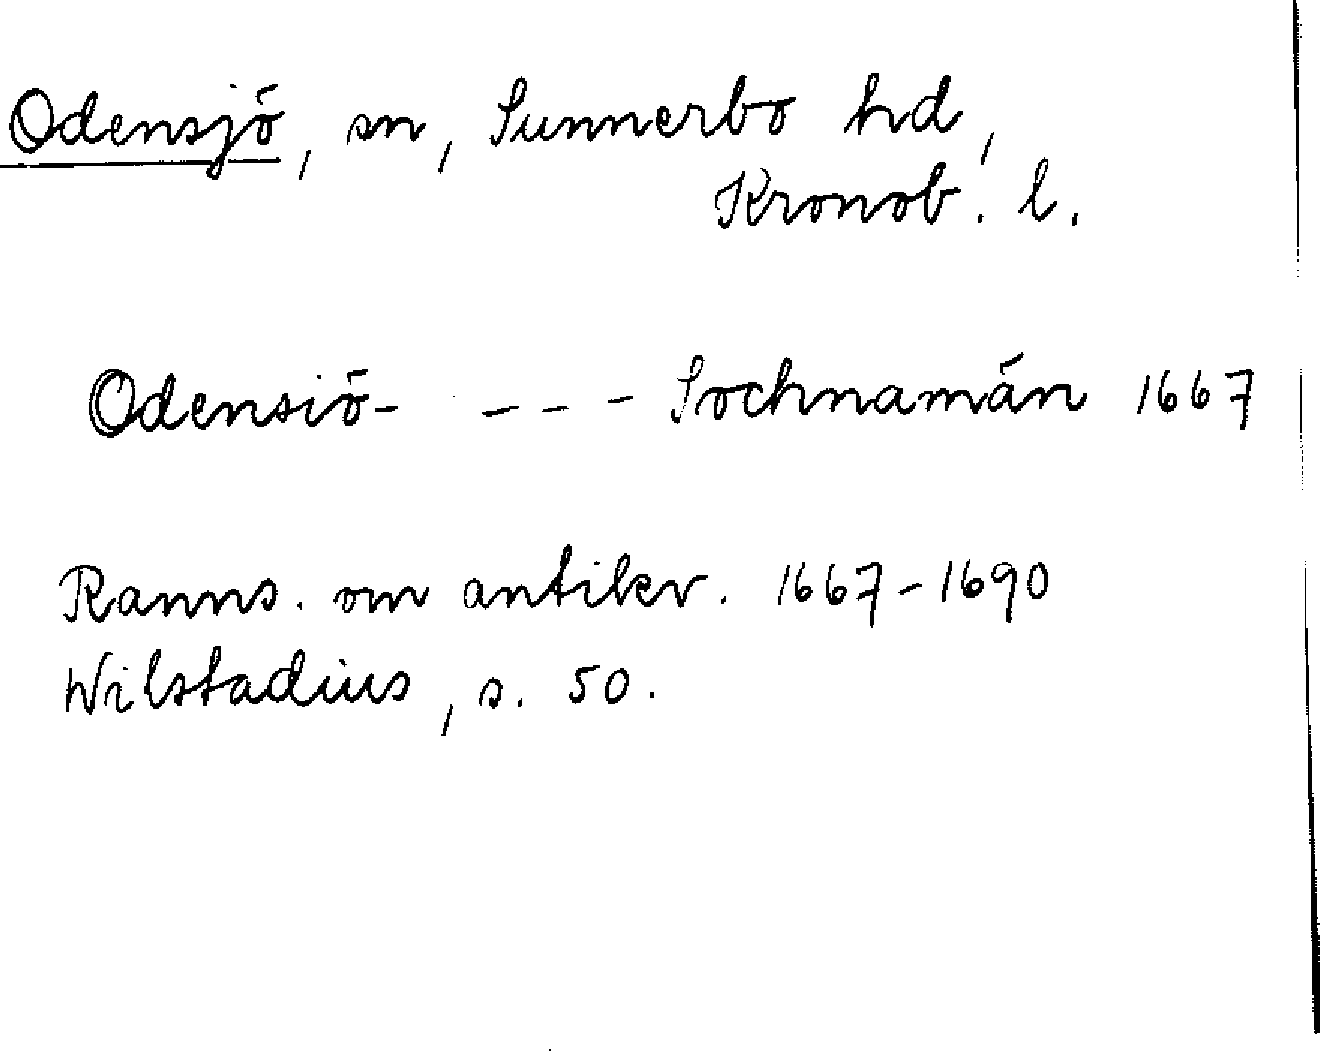 Odensjö, sn, Sunnerbo hd,
Kronob. l.
Odensiö- - - - Sochnamän 1667
Ranns. om antikv. 1667-1690
Wilstadius, s. 50.